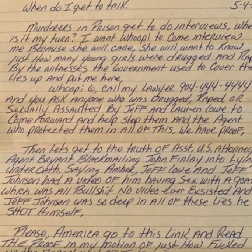 when do I get to talk. 5-4-
Murderers in Prison get to do interviews, when
is it my turn? I want Whoopi to come interview
me because she will care, she will want to know
Just How many young girls were drugged and Raped
By the witnesses the Government used to cover their
lies up and put me here,
Whoopi G, call my Lawyer 904-444-4444
and you ask anyone who was Drugged, Raped or
Sexually Assaulted By Jeff and Lauren Lowe to
Come Forward and help stop them and the Agent
who protected them in all of this, we have proof,
Then lets get to the truth of Asst. U.S. Attorney
Agent Bryant Blackmailing John Finlay into Lying
Under Oath, Saying Amber, Jeff Lowe and Jeff
Johnson had a video of him having sex with a
when was all Bullshit No video ever Exsisted And
Jeff Johnson was so deep in all of these lies he
SHOT Himself,
Please, America go to this Link and Read
The Proof in my motion of just How Fucked